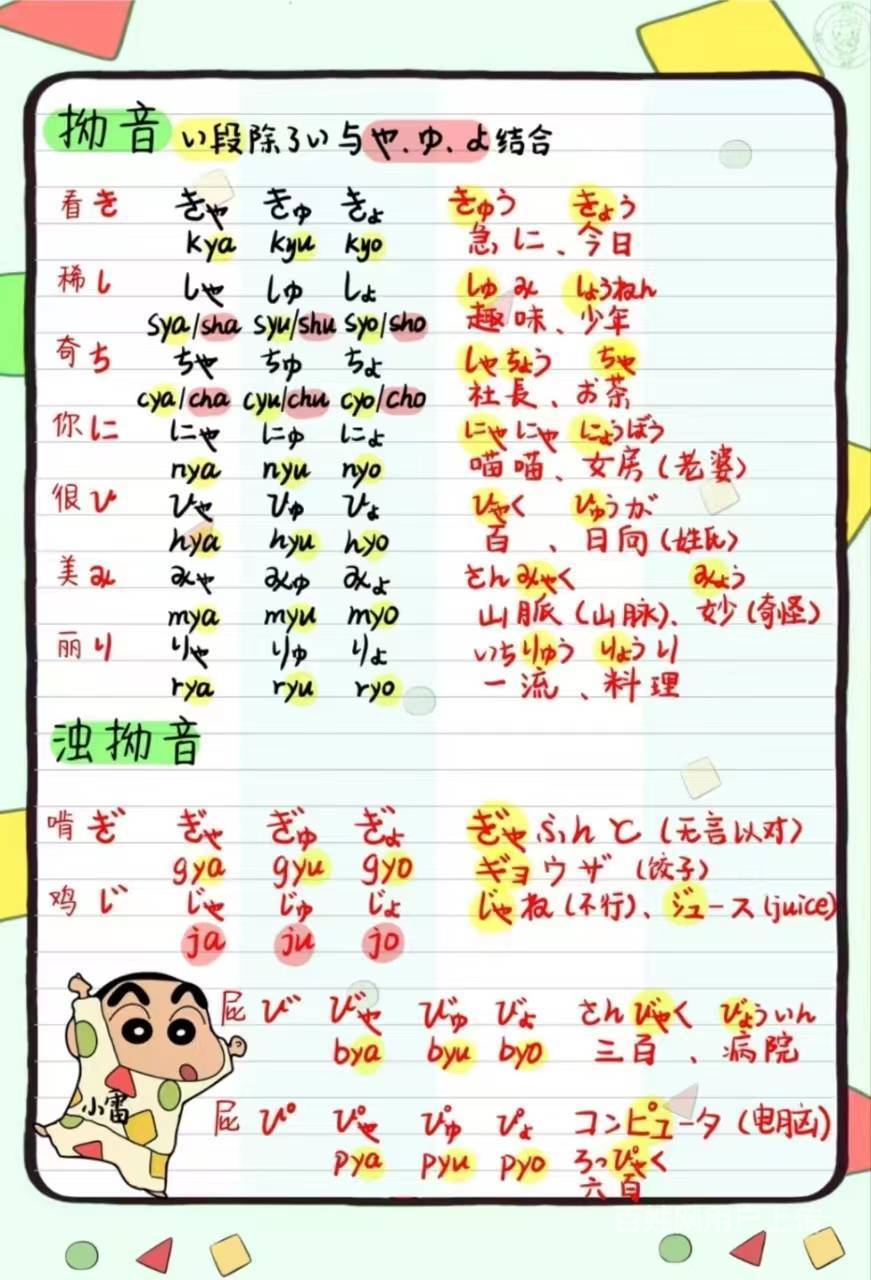 拗音 い段除了い与や、ゆ、よ结合
看き きゃ きゅ きょ きゅう きょう
kya kyu kyo 急に、今日
稀し しゃ しゅ しょ しゅみ しょうねん
sya/sha syu/shu syo/sho 趣味、少年
奇ち ちゃ ちゅ ちょ しゃちょう ちゃ
cya/cha cyu/chu cyo/cho 社長、お茶
你に にゃ にゅ にょ にゃにゃ にょうぼう
nya nyu nyo 喵喵、女房(老婆)
很ひ ひゃ ひゅ ひょ ひゃく ひゅうが
hya hyu hyo 百、日向(姓氏)
美み みゃ みゅ みょ さんみゃく みょう
mya myu myo 山脈(山脉)、妙(奇怪)
丽り りゃ りゅ りょ いちりゅう りょうり
rya ryu ryo 一流、料理
浊拗音
啃ぎ ぎゃ ぎゅ ぎょ ぎゃふんと(无言以对)
gya gyu gyo ギョウザ(饺子)
鸡じ じゃ じゅ じょ じゃね(不行)、ジュース(juice)
ja ju jo
屁び びゃ びゅ びょ さんびゃく びょういん
bya byu byo 三百、病院
小雷
屁ぴ ぴゃ ぴゅ ぴょ コンピュータ(电脑)
pya pyu pyo ろっぴゃく
六百